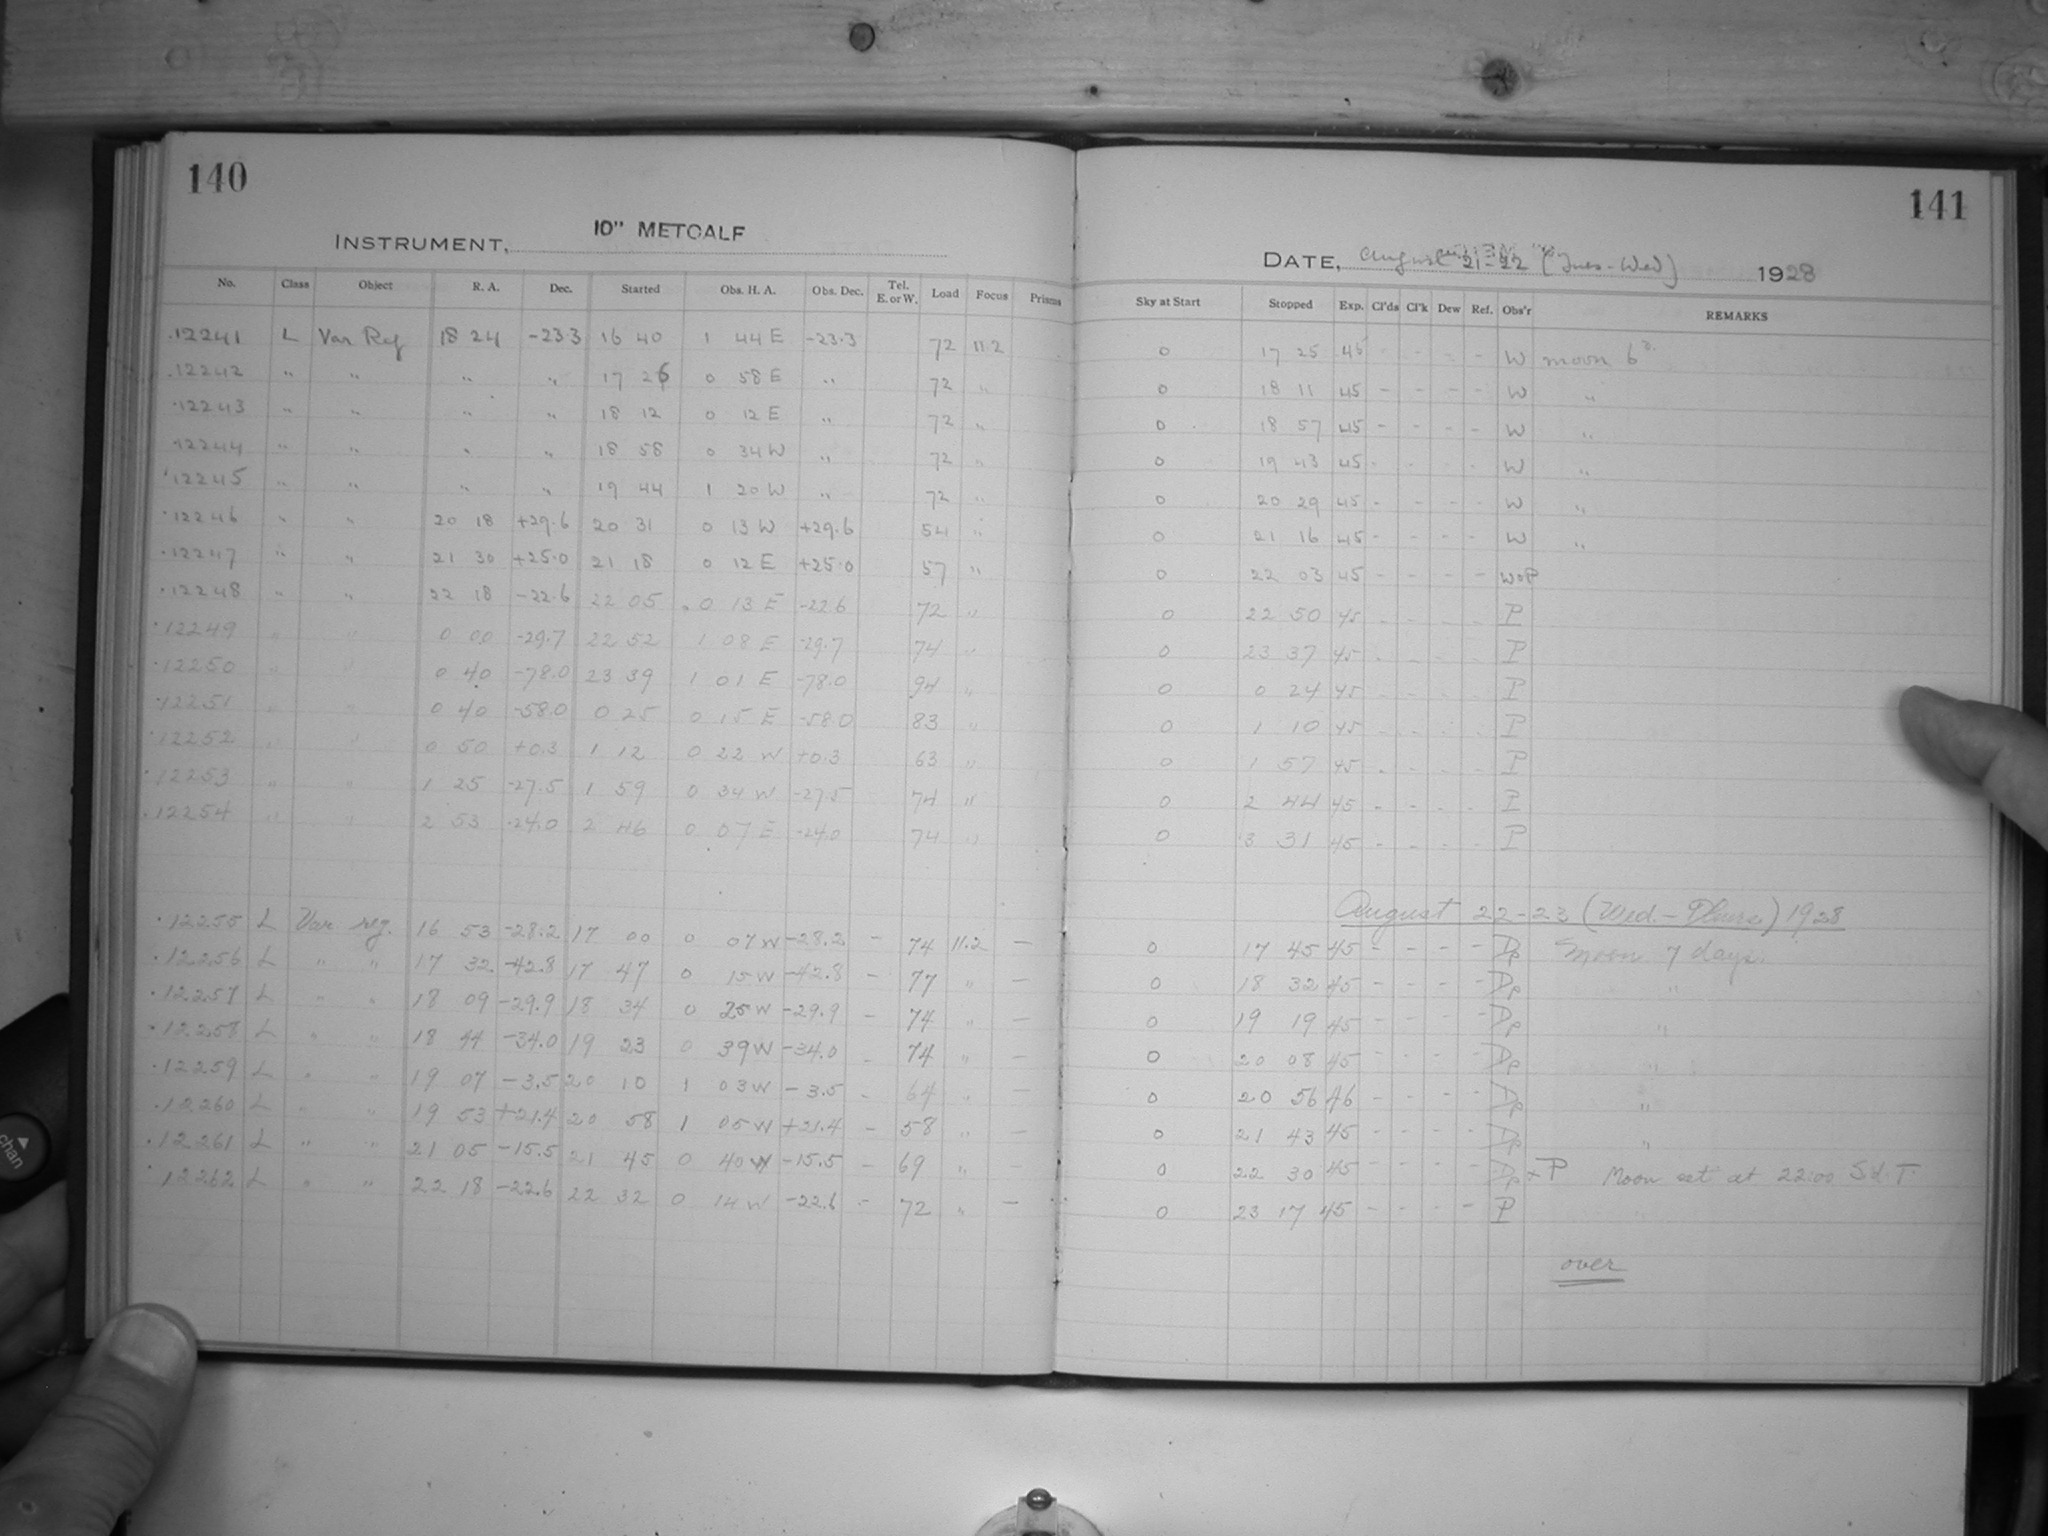 140
INSTRUMENT, 10" METCALF
No. Class Object R. A. Dec. Started Obs. H. A. Obs. Dec. Tel. E. or W. Load Focus Prisms
.12241 L Var Reg 18 24 -23.3 16 40 1 44 E -23.3 72 11.2
.12242 " " " " 17 26 0 58 E " 72 "
.12243 " " " " 18 12 0 12 E " 72 "
.12244 " " " " 18 58 0 34 W " 72 "
.12245 " " " " 19 44 1 20 W " 72 "
.12246 " " 20 18 +29.6 20 31 0 13 W +29.6 54 "
.12247 " " 21 30 +25.0 21 18 0 12 E +25.0 57 "
.12248 " " 22 18 -22.6 22 05 0 13 E -22.6 72 "
.12249 " " 0 00 -29.7 22 52 1 08 E -29.7 74 "
.12250 " " 0 40 -78.0 23 39 1 01 E -78.0 94 "
.12251 " " 0 40 -58.0 0 25 0 15 E -58.0 83 "
.12252 " " 0 50 +0.3 1 12 0 22 W +0.3 63 "
.12253 " " 1 25 -27.5 1 59 0 34 W -27.5 74 "
.12254 " " 2 53 -24.0 2 46 0 07 E -24.0 74 "
.12255 L Var reg. 16 53 -28.2 17 00 0 07 W -28.2 - 74 11.2 -
.12256 L " " 17 32 -42.8 17 47 0 15 W -42.8 - 77 " -
.12257 L " " 18 09 -29.9 18 34 0 25 W -29.9 - 74 " -
.12258 L " " 18 44 -34.0 19 23 0 39 W -34.0 - 74 " -
.12259 L " " 19 07 -3.5 20 10 1 03 W -3.5 - 64 " -
.12260 L " " 19 53 +21.4 20 58 1 05 W +21.4 - 58 " -
.12261 L " " 21 05 -15.5 21 45 0 40 W -15.5 - 69 " -
.12262 L " " 22 18 -22.6 22 32 0 14 W -22.6 - 72 " -
141
DATE, August 21-22 (Tues-Wed) 1928
Sky at Start Stopped Exp. Cl'ds Cl'k Dew Ref. Obs'r REMARKS
0 17 25 45 - - - - W moon 6d.
0 18 11 45 - - - - W "
0 18 57 45 - - - - W "
0 19 43 45 - - - - W "
0 20 29 45 - - - - W "
0 21 16 45 - - - - W "
0 22 03 45 - - - - W+P
0 22 50 45 - - - - P
0 23 37 45 - - - - P
0 0 24 45 - - - - P
0 1 10 45 - - - - P
0 1 57 45 - - - - P
0 2 44 45 - - - - P
0 3 31 45 - - - - P
August 22-23 (Wed.-Thurs) 1928
0 17 45 45 - - - - Dp Moon 7 days.
0 18 32 45 - - - - Dp "
0 19 19 45 - - - - Dp "
0 20 08 45 - - - - Dp "
0 20 56 46 - - - - Dp "
0 21 43 45 - - - - Dp "
0 22 30 45 - - - - Dp + P Moon set at 22:00 Sd. T.
0 23 17 45 - - - - P
over